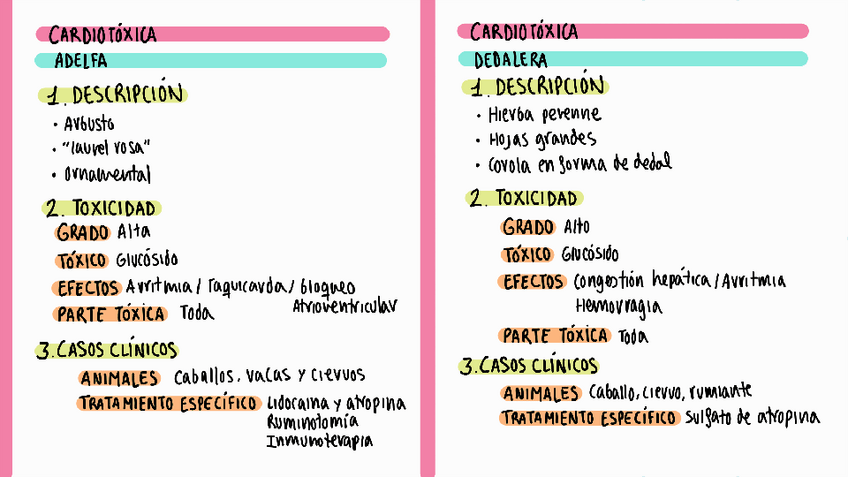 CARDIOTÓXICA
ADELFA
1. DESCRIPCIÓN
• Arbusto
• "laurel rosa"
• Ornamental
2. TOXICIDAD
GRADO Alta
TÓXICO Glucósido
EFECTOS Arritmia / Taquicarda / bloqueo
Atrioventricular
PARTE TÓXICA Toda
3. CASOS CLÍNICOS
ANIMALES Caballos, vacas y ciervos
TRATAMIENTO ESPECÍFICO Lidocaina y atropina
Ruminotomía
Inmunoterapia
CARDIOTÓXICA
DEDALERA
1. DESCRIPCIÓN
• Hierba perenne
• Hojas grandes
• Corola en forma de dedal
2. TOXICIDAD
GRADO Alto
TÓXICO Glucósido
EFECTOS Congestión hepática / Arritmia
Hemorragia
PARTE TÓXICA Toda
3. CASOS CLÍNICOS
ANIMALES Caballo, ciervo, rumiante
TRATAMIENTO ESPECÍFICO Sulfato de atropina